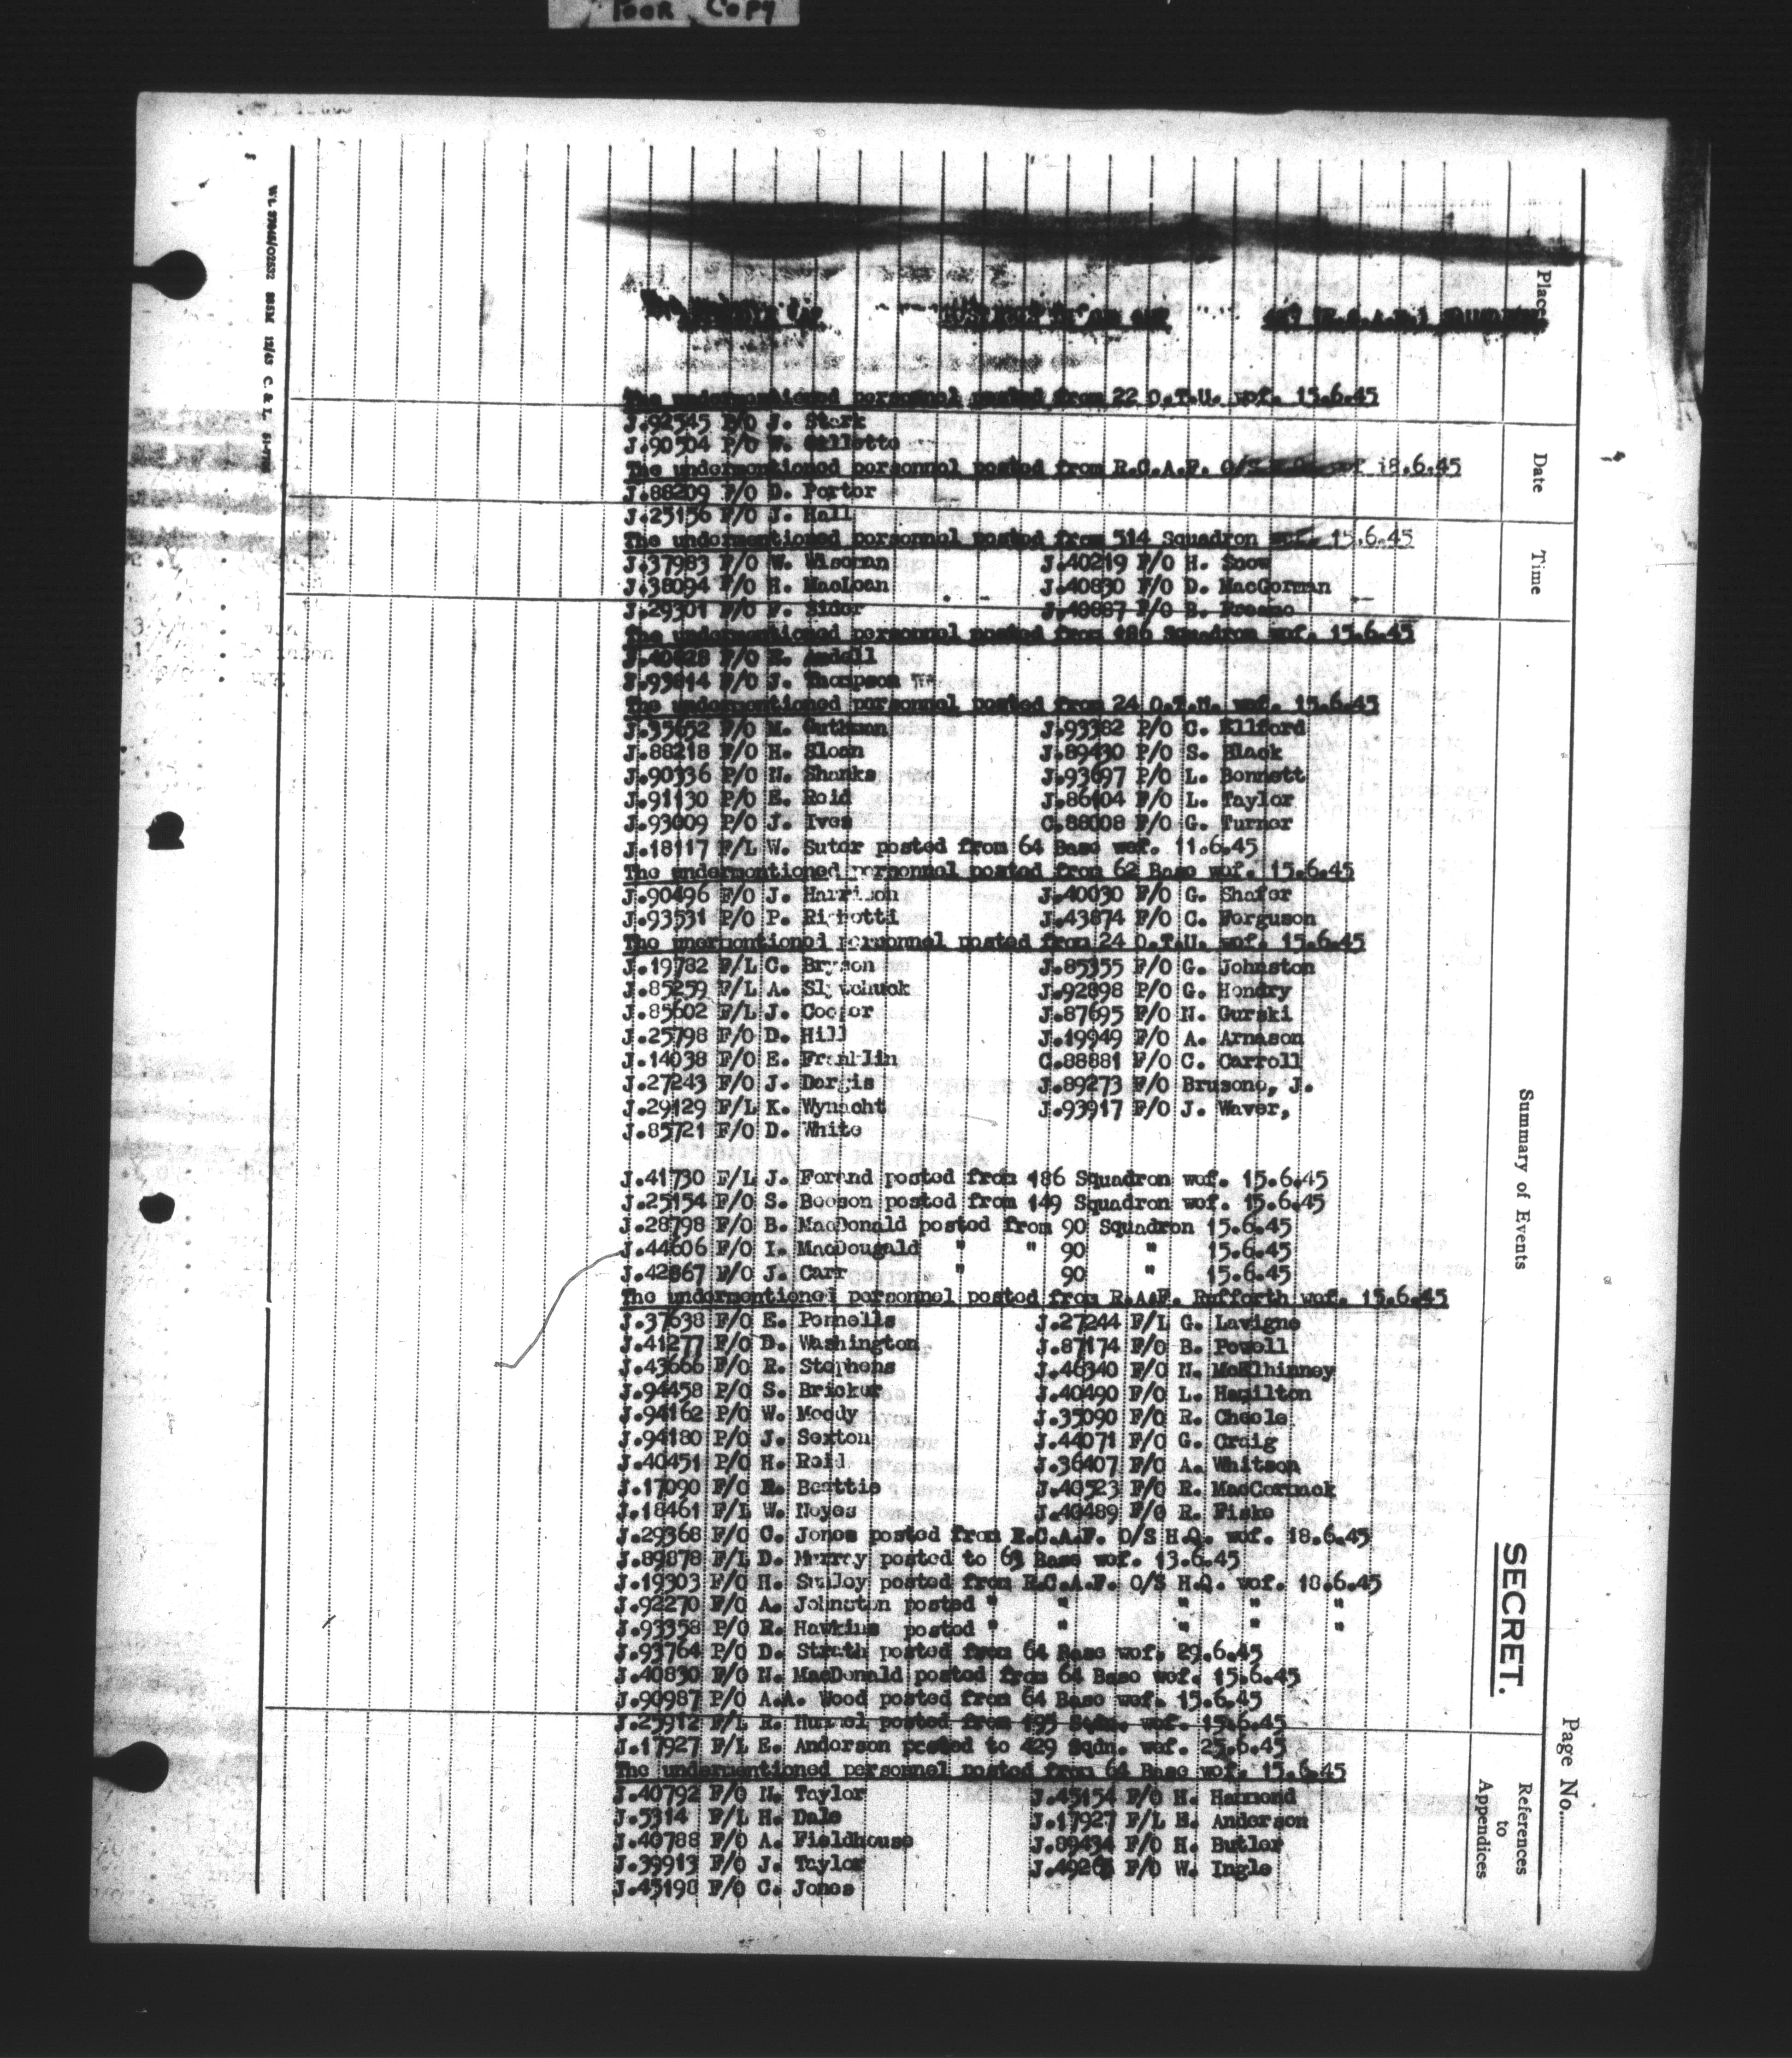 POOR COPY
Place
Date
Time
Summary of Events
SECRET.
Page No.
References
to
Appendices
The undermentioned personnel posted from 22 O.T.U. wef. 15.6.45
J.92545 J. Stark
J.90504 P/O W.
The undermentioned personnel posted from R.C.A.F. O/S
J.88209 F/O D. Porter
J.25156 F/O J. Hall
The undermentioned personnel posted from 514 Squadron wef. 15.6.45
J.37983 F/O W. Wiseman J.40219 F/O H. Snow
J.38094 F/O H. MacLean J.40830 F/O D. MacGorman
J.29301 F/O F. Sider J.40887 F/O
The undermentioned personnel posted from 186 Squadron wef. 15.6.45
F/O
J.93814 F/O J. Thompson
The undermentioned personnel posted from 24 O.T.U. wef. 15.6.45
J.35652 F/O M. Guthman J.93382 P/O C. Ellford
J.88218 F/O H. Sloan J.89430 P/O S. Black
J.90336 P/O N. Shanks J.93697 P/O L. Bonnett
J.91130 P/O E. Reid J.86104 F/O L. Taylor
J.93009 P/O J. Ives C.88008 F/O G. Turner
J.18117 F/L W. Suter posted from 64 Base wef. 11.6.45
The undermentioned personnel posted from 62 Base wef. 15.6.45
J.90496 F/O J. Harrison J.40030 F/O G. Shafer
J.93531 P/O P. Richotti J.43874 F/O C. Ferguson
The unermentioned personnel posted from 24 O.T.U. wef. 15.6.45
J.19782 F/L C. Bryson J.85355 F/O G. Johnston
J.85259 F/L A. Slywchuck J.92898 P/O G. Hendry
J.85602 F/L J. Cooper J.87695 F/O N. Gurski
J.25798 F/O D. Hill J.19949 F/O A. Arnason
J.14038 F/O E. Franklin C.88881 F/O C. Carroll
J.27243 F/O J. Dargis J.89273 F/O Brusono, J.
J.29129 F/L K. Wynacht J.93917 F/O J. Waver,
J.85721 F/O D. White
J.41730 F/L J. Forand posted from 186 Squadron wef. 15.6.45
J.25154 F/O S. Booson posted from 149 Squadron wef. 15.6.45
J.28798 F/O B. MacDonald posted from 90 Squadron 15.6.45
J.44606 F/O I. MacDougald " " 90 " 15.6.45
J.42867 F/O J. Carr " 90 " 15.6.45
The undermentioned personnel posted from R.A.F. Rufforth wef. 15.6.45
J.37638 F/O E. Pennells J.27244 F/L G. Lavigne
J.41277 F/O D. Washington J.87174 F/O B. Powell
J.43666 F/O R. Stephens J.46340 F/O N. McElhinney
J.94458 P/O S. Bricker J.40490 F/O L. Hamilton
J.94162 P/O W. Moody J.35090 F/O R. Cheole
J.94180 P/O J. Sexton J.44071 F/O G. Craig
J.40451 P/O H. Reid J.36407 F/O A. Whitson
J.17090 F/O R. Beattie J.40523 F/O R. MacCormack
J.18461 F/L W. Noyes J.40489 F/O R. Fiske
J.29368 F/O C. Jones posted from R.C.A.F. O/S H.Q. wef. 18.6.45
J.89878 F/L D. Murray posted to 63 Base wef. 13.6.45
J.19303 F/O H. posted from R.C.A.F. O/S H.Q. wef. 18.6.45
J.92270 F/O A. Johnston posted " " " " "
J.93358 P/O R. Hawkins posted " " " " "
J.93764 P/O D. Strath posted from 64 Base wef. 29.6.45
J.40830 F/O N. MacDonald posted from 64 Base wef. 15.6.45
J.90987 P/O A.A. Wood posted from 64 Base wef. 15.6.45
J.25912 F/L R. posted from 195 Sqdn. wef. 15.6.45
J.17927 F/L E. Anderson posted to 429 Sqdn. wef. 25.6.45
The undermentioned personnel posted from 64 Base wef. 15.6.45
J.40792 F/O N. Taylor J.45154 F/O H. Hammond
J.5314 F/L H. Dale J.17927 F/L E. Anderson
J.40788 F/O A. Fieldhouse J.89434 F/O H. Butler
J.39913 F/O J. Taylor F/O W. Ingle
J.45198 F/O C. Jones